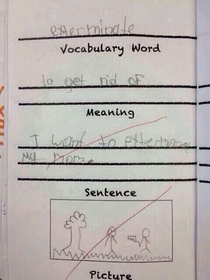 exterminate
Vocabulary Word
to get rid of
Meaning
I want to exterminate
my mom.
Sentence
Picture